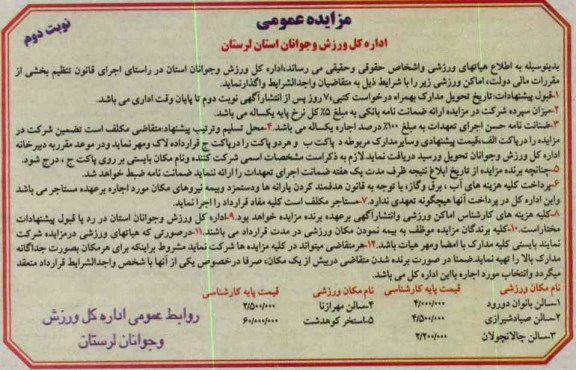 مزایده عمومی
نوبت دوم
اداره کل ورزش وجوانان استان لرستان
بدینوسیله به اطلاع هیاتهای ورزشی واشخاص حقوقی وحقیقی می رساند،اداره کل ورزش وجوانان استان در راستای اجرای قانون تنظیم بخشی از
مقررات مالی دولت، اماکن ورزشی زیر را با شرایط ذیل به متقاضیان واجدالشرایط واگذارنماید.
۱-قبول پیشنهادات:تاریخ تحویل مدارک بهمراه درخواست کتبی،۷ روز پس از انتشارآگهی نوبت دوم تا پایان وقت اداری می باشد.
۲-میزان سپرده شرکت در مزایده ارائه ضمانت نامه بانکی به مبلغ ۵٪ کل نرخ پایه یکساله می باشد.
۳-ضمانت نامه حسن اجرای تعهدات به مبلغ ۱۰۰٪ درصد اجاره یکساله می باشد.۴-محل تسلیم وترتیب پیشنهاد:متقاضی مکلف است تضمین شرکت در
مزایده را درپاکت الف،قیمت پیشنهادی وسایرمدارک مربوطه در پاکت ب وهردو پاکت را درپاکت ج قرارداده لاک ومهر نماید ودر موعد مقرربه دبیرخانه
اداره کل ورزش وجوانان تحویل ورسید دریافت نماید.لازم به ذکراست مشخصات اسمی شرکت کننده ونام مکان بایستی بر روی پاکت ج ، درج شود.
۵-چنانچه برنده مزایده از تاریخ ابلاغ نتیجه ظرف مدت یک هفته ضمانت اجرای تعهدات را ارائه ننماید ضمانت نامه ضبط خواهد شد.
۶-پرداخت کلیه هزینه های آب ، برق وگاز، با توجه به قانون هدفمند کردن یارانه ها ودستمزد وبیمه نیروهای مکان مورد اجاره برعهده مستاجر می باشد
واین اداره کل در پرداخت آنها هیچگونه تعهدی ندارد.۷-مستاجر مکلف است کلیه مفاد قرارداد را اجرا نماید.
۸-کلیه هزینه های کارشناس اماکن ورزشی وانتشارآگهی برعهده برنده مزایده خواهد بود.۹-اداره کل ورزش وجوانان استان در رد یا قبول پیشنهادات
مختاراست.۱۰-کلیه برندگان مزایده موظف به بیمه نمودن مکان ورزشی در مدت قرارداد می باشند.۱۱-درصورتی که هیاتهای ورزشی درمزایده شرکت
نمایند بایستی کلیه مدارک با امضا ومهر هیات باشد.۱۲-هرمتقاضی میتواند در کلیه مزایده ها شرکت نماید مشروط براینکه برای هرمکان بصورت جداگانه
مدارک بالا را تهیه نماید.ضمنا در صورت برنده شدن متقاضی دربیش از یک مکان، صرفا درخصوص یکی از آنها با شخص واجدالشرایط قرارداد منعقد
میگردد وانتخاب مورد اجاره بااین اداره کل می باشد.
نام مکان ورزشی قیمت پایه کارشناسی نام مکان ورزشی قیمت پایه کارشناسی
۱-سالن بانوان دورود ۴/۰۰۰/۰۰۰ ۴-سالن مهرازنا ۲/۵۰۰/۰۰۰
۲-سالن صیادشیرازی ۴/۵۰۰/۰۰۰ ۵-استخر کوهدشت ۶۰/۰۰۰/۰۰۰
۳-سالن چالانچولان ۲/۲۰۰/۰۰۰
روابط عمومی اداره کل ورزش
وجوانان لرستان